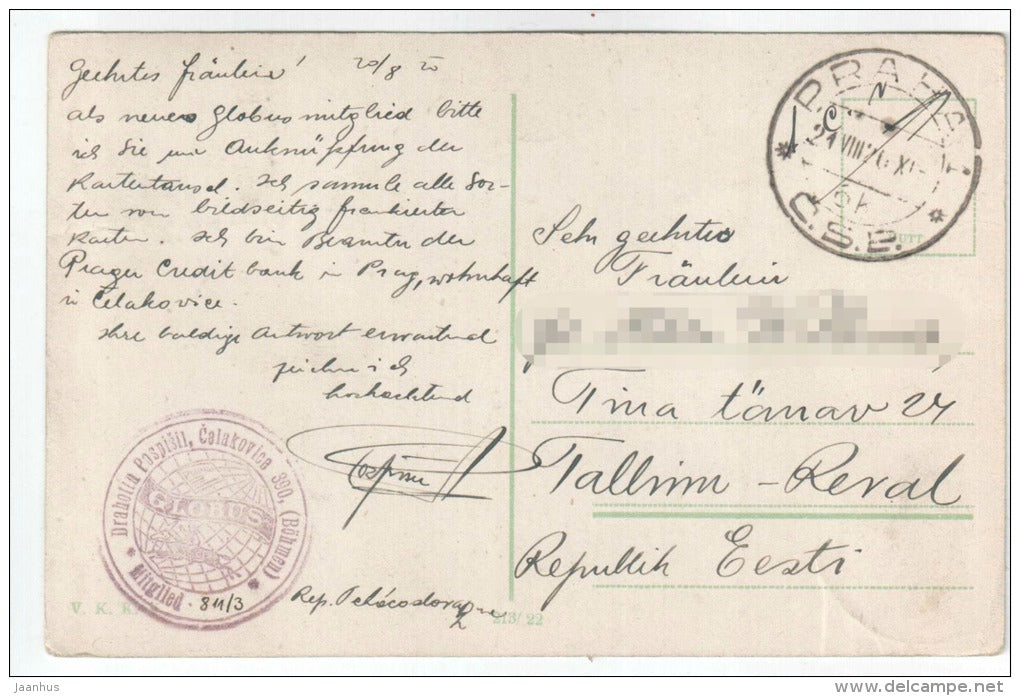 Geehrtes Fräulein! 20/8 20
als neues Globus mitglied bitte
ich Sie um Anknüpfung der
Kartentausch. Ich sammle alle Sor-
ten von bildseitig frankierten
Karten. Ich bin Beamter der
Prager Creditbank in Prag, wohnhaft
in Čelakovice.
Ihre baldige Antwort erwartend
zeichne ich
hochachtend
Pospíšil
Drahotín Pospíšil, Čelakovice 390, (Böhmen)
GLOBUS
* Mitglied - 811/3 *
Rep.
V. K.
213/22
PRAHA
21 VIII 20 XI-
Č.S.P.
Sehr geehrtes
Fräulein
Tina tänav 24
Tallinn - Reval
Republik Eesti
jaanhus
www.delcampe.net